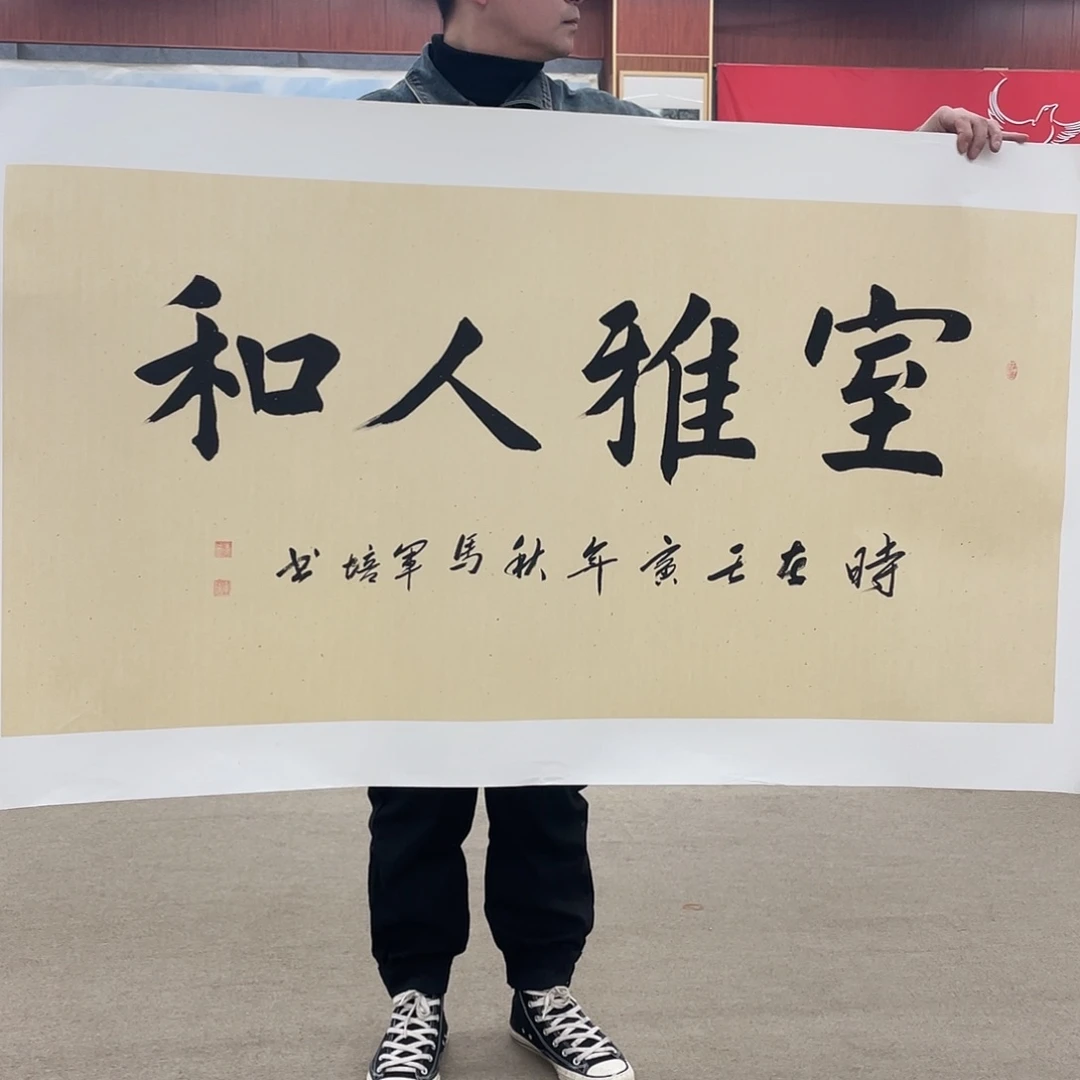 室雅人和
時在壬寅年秋馬軍培书